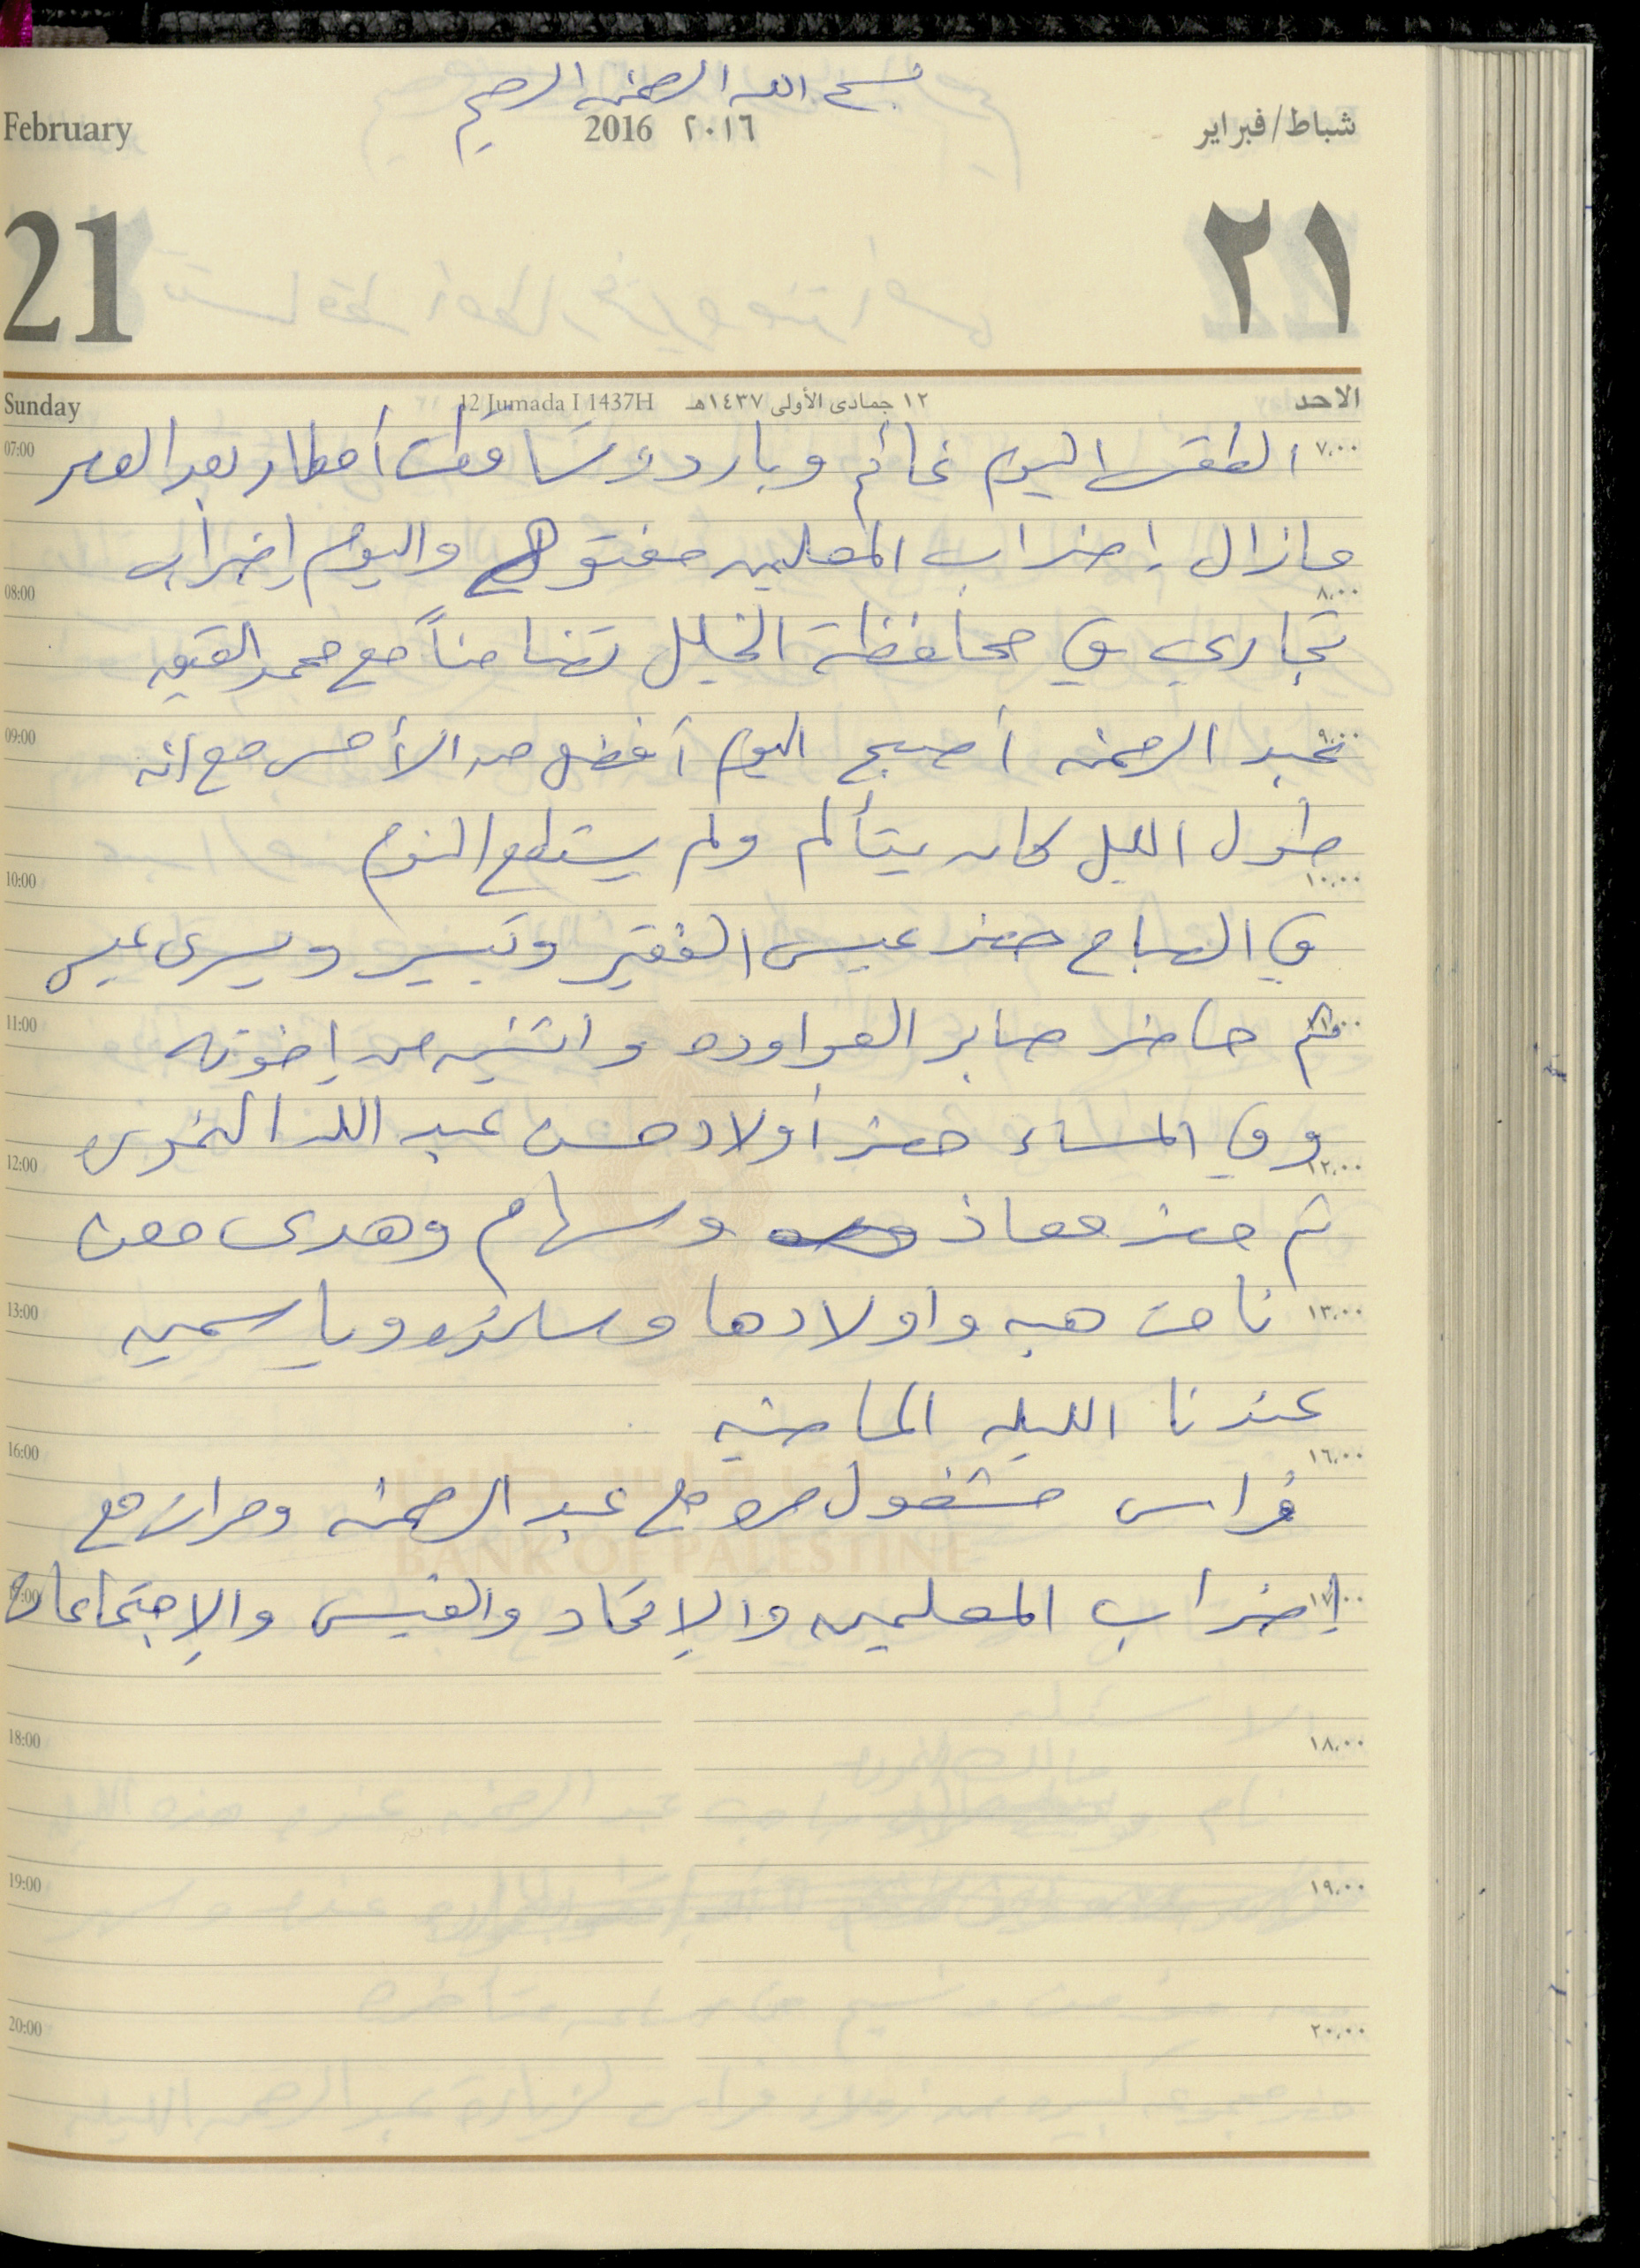 بسم الله الرحمن الرحيم
February 2016 ٢٠١٦ شباط/فبراير
21 ٢١
Sunday 12 Jumada I 1437H ١٢ جمادى الأولى ١٤٣٧هـ الاحد
07:00 ٧,٠٠ الطقس اليوم غائم وبارد وتساقطت أمطار بعد العصر
مازال إضراب المعلمين مفتوح واليوم إضراب
08:00 ٨,٠٠
تجاري في محافظة الخليل تضامناً مع محمد القيق
09:00 ٩,٠٠ عبد الرحمن أصبح اليوم أفضل من الأمس مع انه
طول الليل كان يتألم ولم يستطع النوم
10:00 ١٠,٠٠
في الصباح حضر عيسى الفقير وتيسير ويسرى عيسى
11:00 ١١,٠٠ ثم حاضر صابر العواوده واثنين من إخوته
وفي المساء حضر أولاد حسن عبد الله النمورى
12:00 ١٢,٠٠
ثم حضر معاذ وسهام وهدى معن
13:00 ١٣,٠٠ نامت هبه واولادها وسلن وياسمين
عندنا الليله الماضيه
16:00 ١٦,٠٠
فراس مشغول مره مع عبد الرحمن ومرات مع
BANK OF PALESTINE
17:00 ١٧,٠٠ إضراب المعلمين والإتحاد والفيس والإجتماعات
18:00 ١٨,٠٠
19:00 ١٩,٠٠
20:00 ٢٠,٠٠